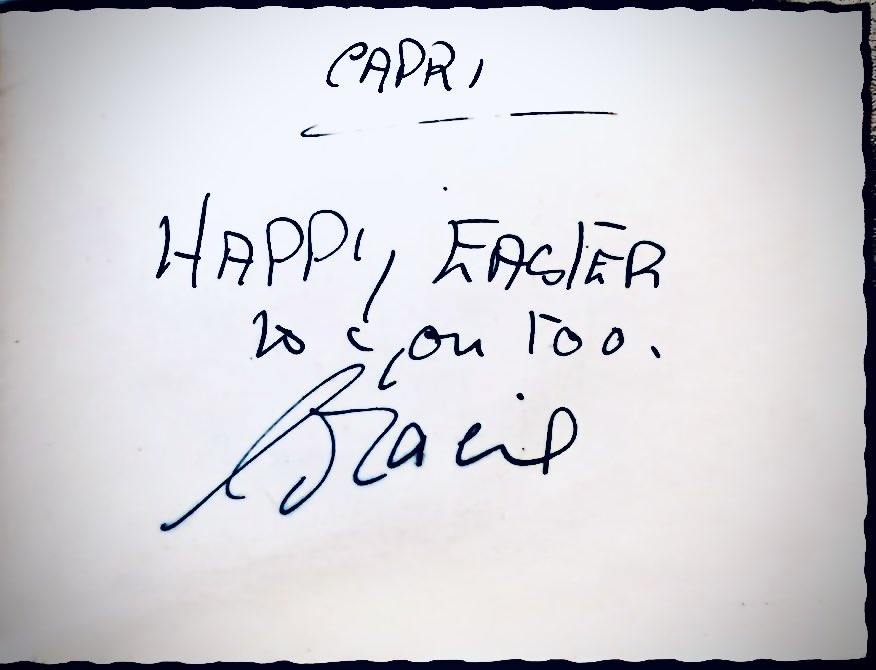 CAPRI
HAPPY EASTER
to you Too.